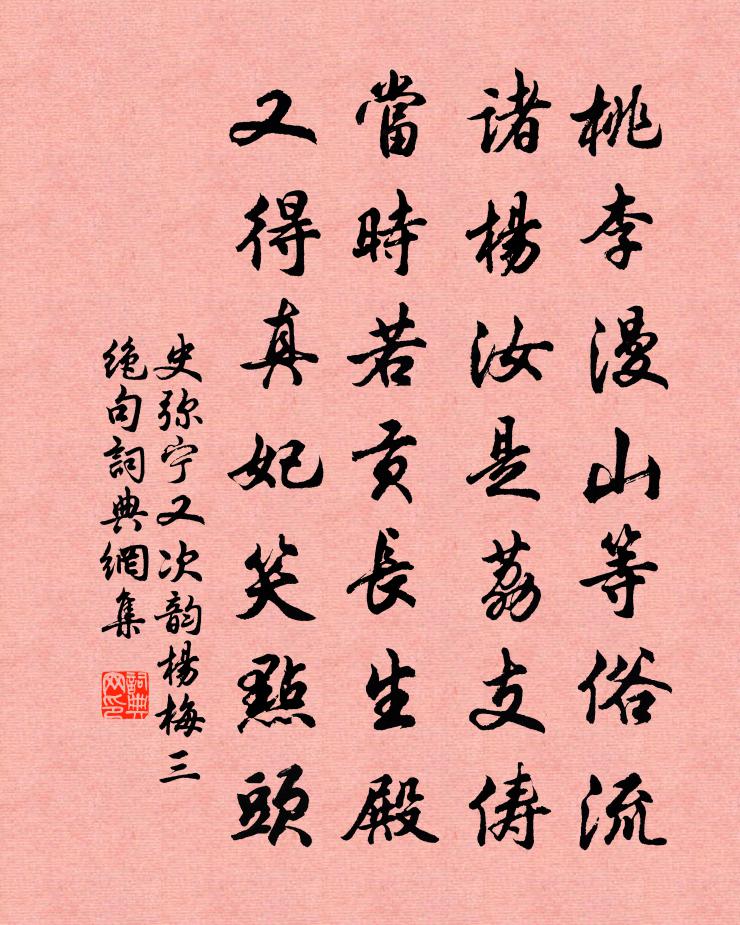 桃李漫山等俗流
諸楊汝是荔支儔
當時若貢長生殿
又得真妃笑點頭
史弥宁又次韵楊梅三
絶句詞典網集
詞典
网印